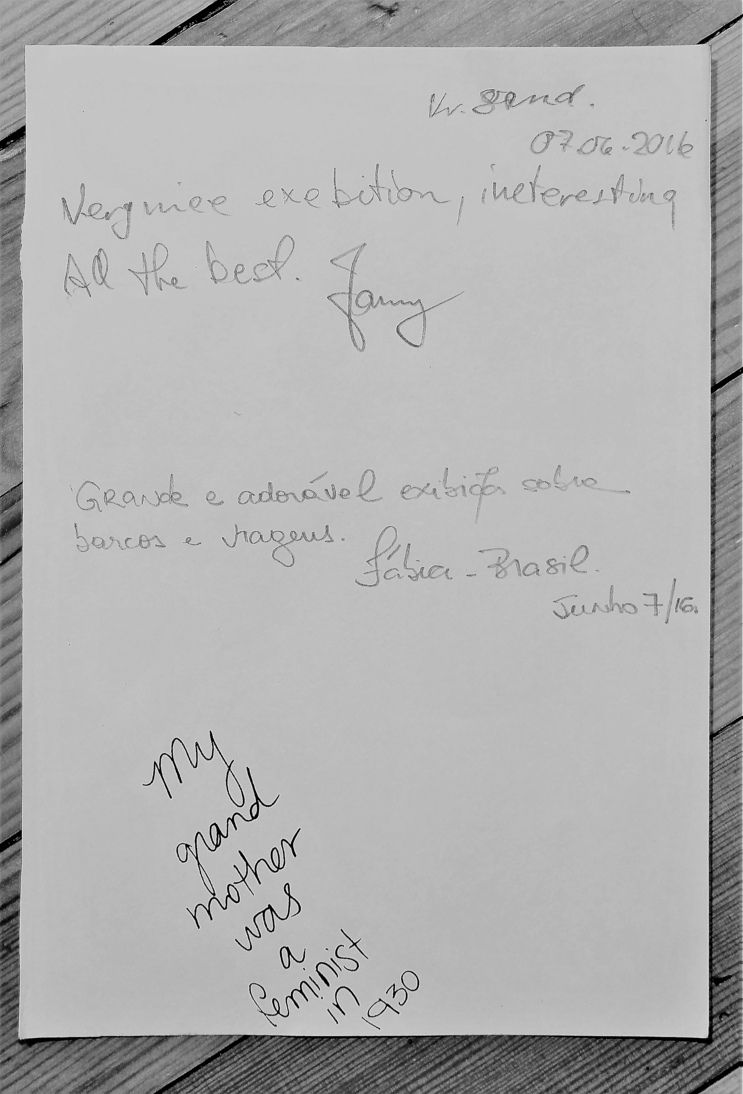 Kr. Sand.
07.06.2016
Vergniee exebition, ineteresting
All the best. Janny
Grande e adorável exibiçã sobre
barcos e viagens.
Fábia - Brasil.
Junho 7/16.
My
grand
mother
was
a
feminist
in
1930